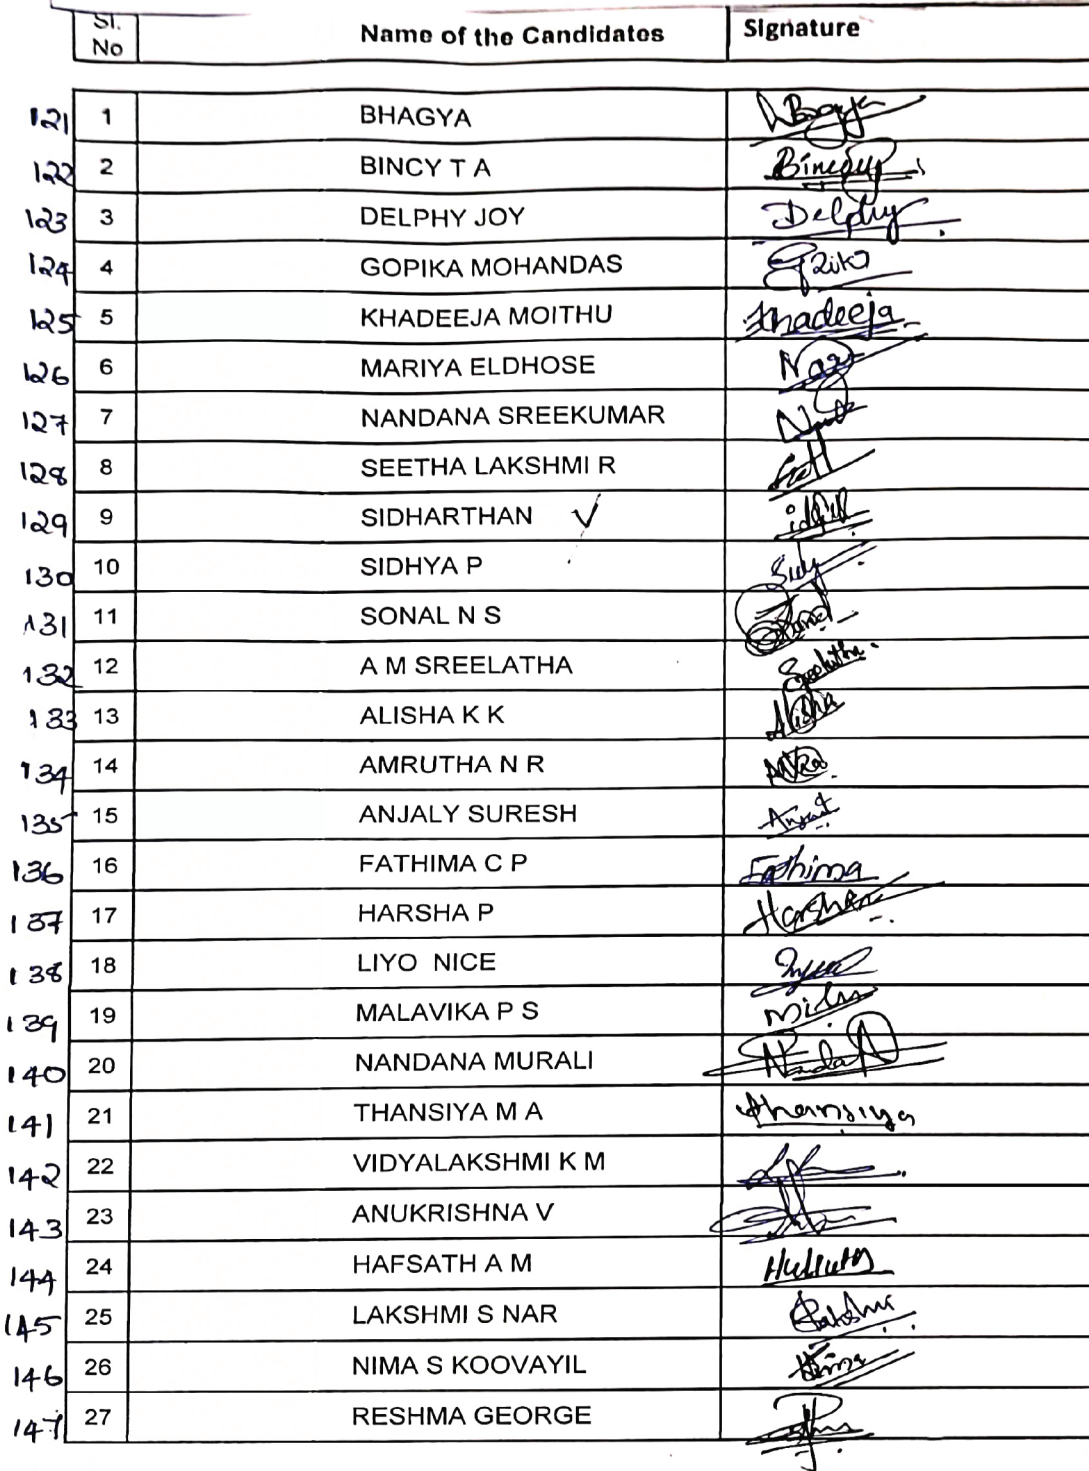 Sl. No Name of the Candidates Signature
121 1 BHAGYA
122 2 BINCY T A Bincy
123 3 DELPHY JOY Delphy
124 4 GOPIKA MOHANDAS
125 5 KHADEEJA MOITHU Khadeeja
126 6 MARIYA ELDHOSE
127 7 NANDANA SREEKUMAR
128 8 SEETHA LAKSHMI R
129 9 SIDHARTHAN ✓
130 10 SIDHYA P
131 11 SONAL N S
132 12 A M SREELATHA
133 13 ALISHA K K Alisha
134 14 AMRUTHA N R
135 15 ANJALY SURESH
136 16 FATHIMA C P Fathima
137 17 HARSHA P Harsha
138 18 LIYO NICE
139 19 MALAVIKA P S
140 20 NANDANA MURALI
141 21 THANSIYA M A Thansiya
142 22 VIDYALAKSHMI K M
143 23 ANUKRISHNA V
144 24 HAFSATH A M
145 25 LAKSHMI S NAR
146 26 NIMA S KOOVAYIL Nima
147 27 RESHMA GEORGE